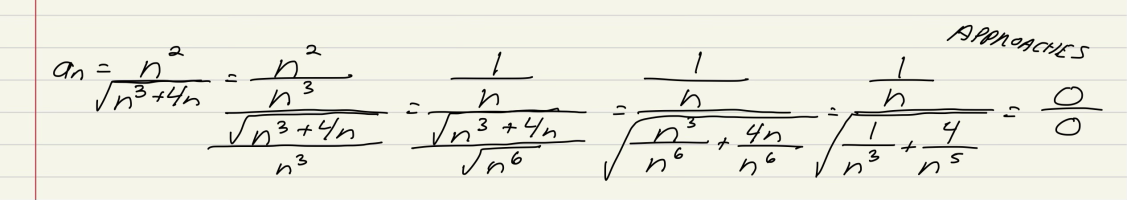 APPROACHES
aₙ = n²/√(n³+4n) = (n²/n³)/(√(n³+4n)/n³) = (1/n)/(√(n³+4n)/√(n⁶)) = (1/n)/√(n³/n⁶ + 4n/n⁶) = (1/n)/√(1/n³ + 4/n⁵) = 0/0